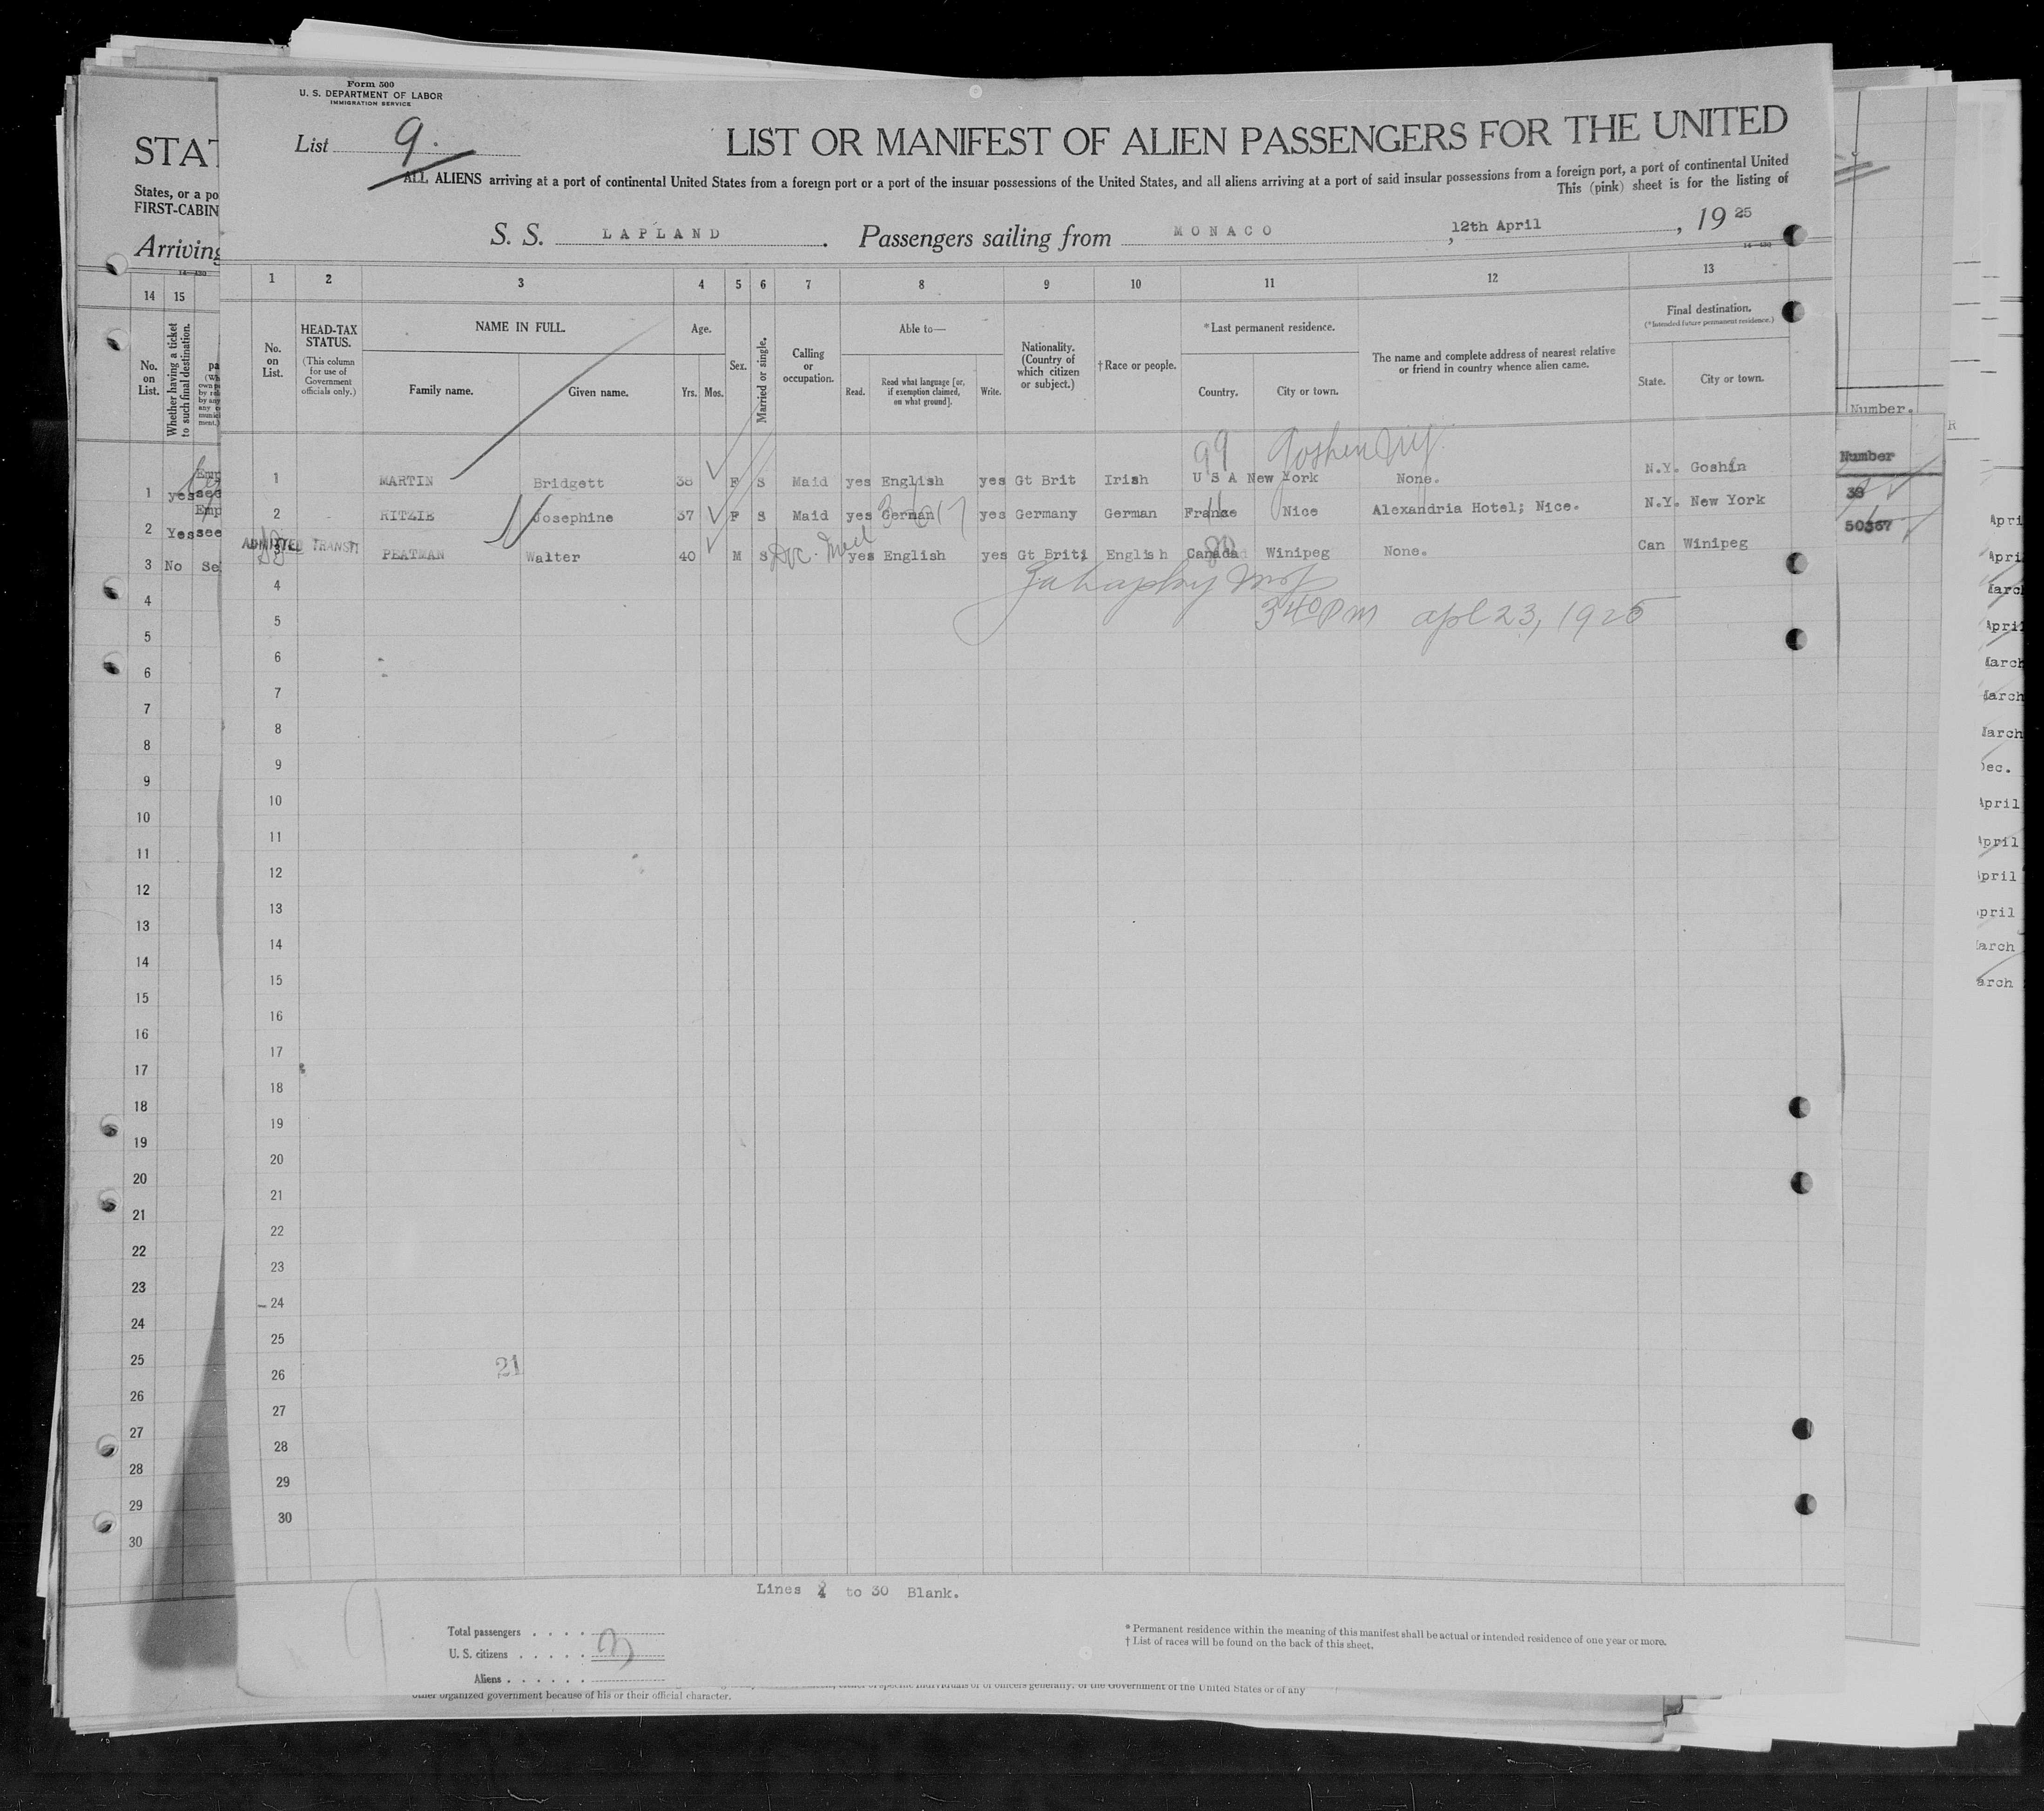 Form 500
U. S. DEPARTMENT OF LABOR
IMMIGRATION SERVICE
List 9.
LIST OR MANIFEST OF ALIEN PASSENGERS FOR THE UNITED
ALL ALIENS arriving at a port of continental United States from a foreign port or a port of the insular possessions of the United States, and all aliens arriving at a port of said insular possessions from a foreign port, a port of continental United
This (pink) sheet is for the listing of
S. S. LAPLAND. Passengers sailing from MONACO, 12th April, 1925
1 2 3 4 5 6 7 8 9 10 11 12 13
No. on List.
HEAD-TAX STATUS.
(This column for use of Government officials only.)
NAME IN FULL.
Family name. Given name.
Age.
Yrs. Mos.
Sex.
Married or single.
Calling or occupation.
Able to—
Read. Read what language [or, if exemption claimed, on what ground]. Write.
Nationality. (Country of which citizen or subject.)
†Race or people.
*Last permanent residence.
Country. City or town.
The name and complete address of nearest relative or friend in country whence alien came.
Final destination.
(*Intended future permanent residence.)
State. City or town.
99 Goshen NY.
1 MARTIN Bridgett 38 F S Maid yes English yes Gt Brit Irish U S A New York None. N.Y. Goshin
2 RITZIE Josephine 37 F S Maid yes German yes Germany German France Nice Alexandria Hotel; Nice. N.Y. New York
ADMITTED TRANSIT
3 PEATMAN Walter 40 M S yes English yes Gt Briti English Canada Winipeg None. Can Winipeg
4
3 40 PM apl 23, 1925
5
6
7
8
9
10
11
12
13
14
15
16
17
18
19
20
21
22
23
24
25
26
21
27
28
29
30
Lines 4 to 30 Blank.
Total passengers
U. S. citizens
Aliens
* Permanent residence within the meaning of this manifest shall be actual or intended residence of one year or more.
† List of races will be found on the back of this sheet.
other organized government because of his or their official character.
STAT
States, or a po
FIRST-CABIN
Arriving
14 15
No. on List.
Whether having a ticket to such final destination.
1 yes
2 Yes see
3 No Se
4
5
6
7
8
9
10
11
12
13
14
15
16
17
18
19
20
21
22
23
24
25
26
27
28
29
30
Number.
Number
38
50367
Apri
Apri
March
April
March
March
March
Dec.
April
April
April
April
March
March